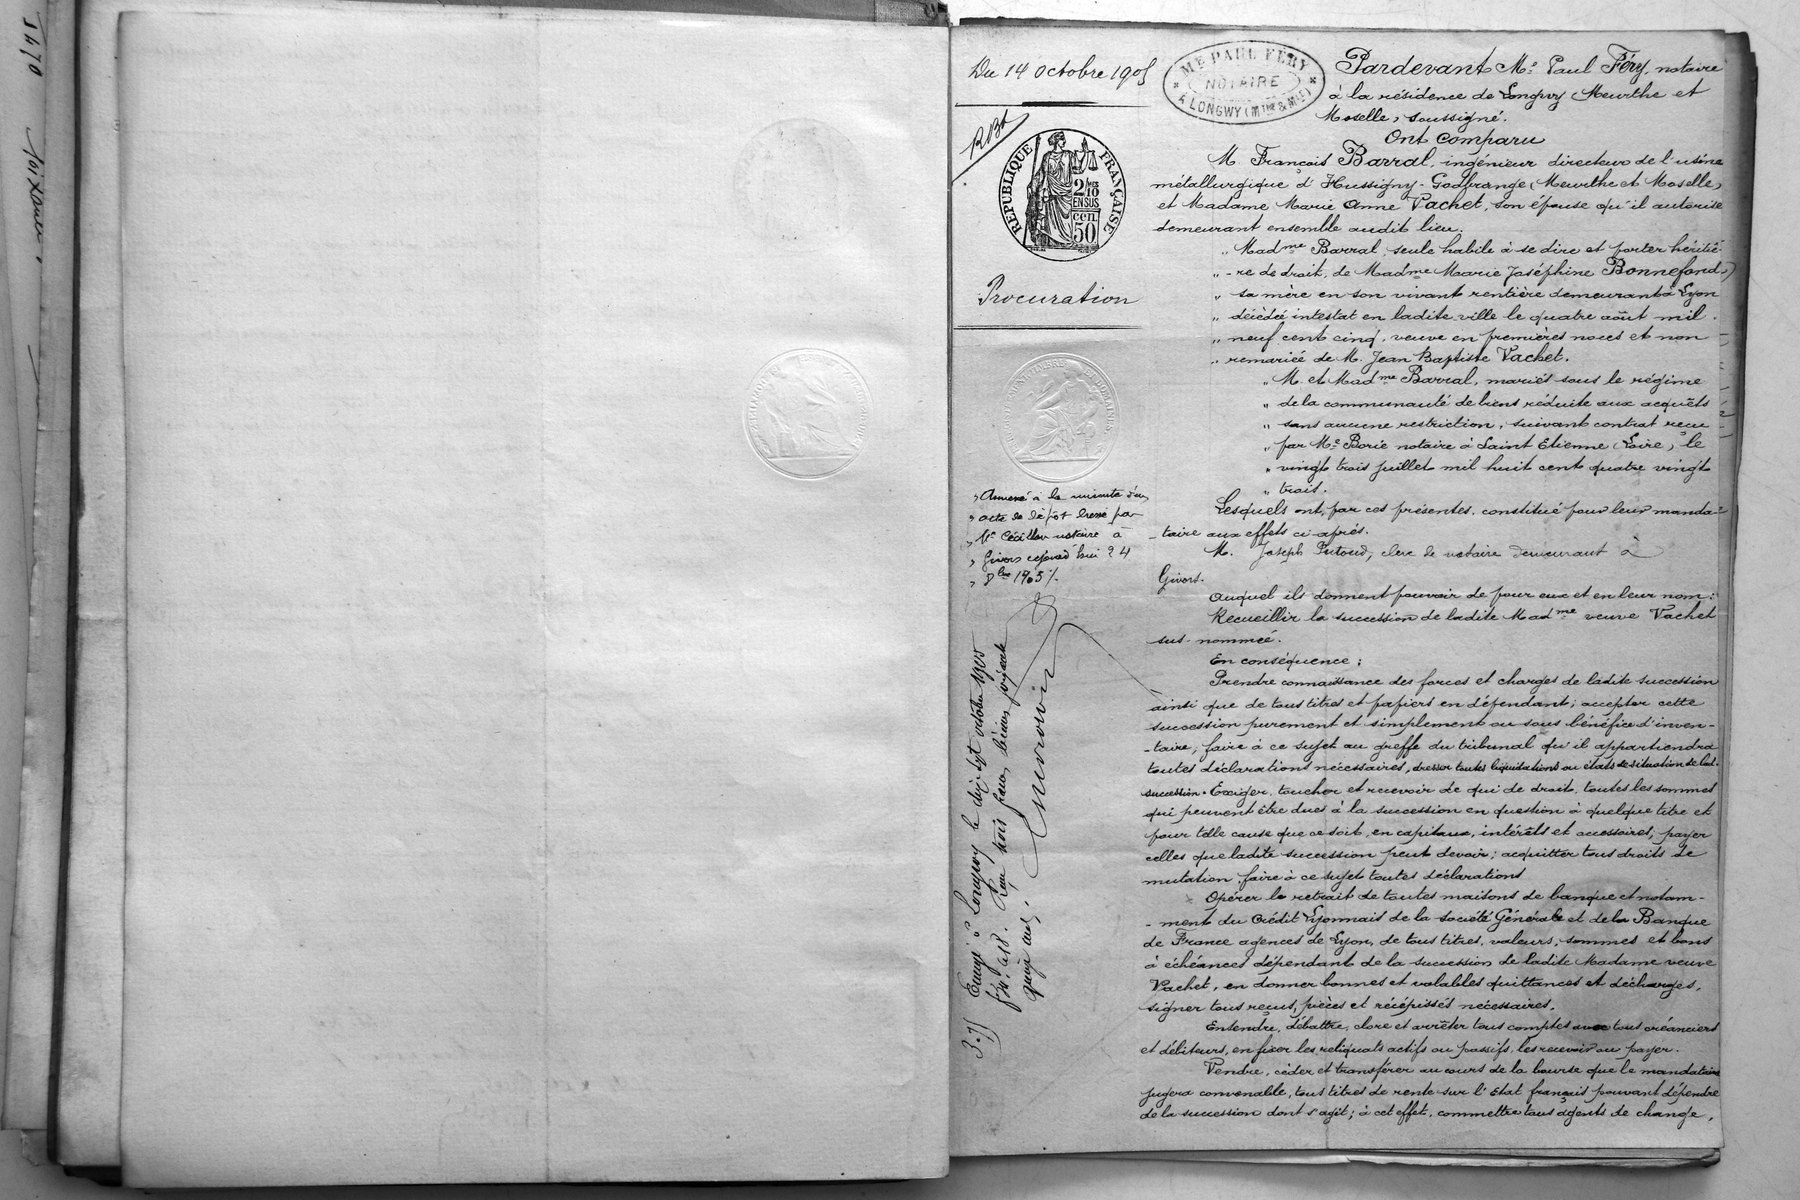 Du 14 Octobre 1905
ME PAUL FÉRY
NOTAIRE
À LONGWY (MTHE & MLLE)
RÉPUBLIQUE FRANÇAISE
2/10
EN SUS
cen.
50
Procuration
Pardevant Me Paul Féry, notaire
à la résidence de Longwy (Meurthe et
Moselle) soussigné.
Ont Comparu
M. François Barral, ingénieur directeur de l'usine
métallurgique d'Hussigny-Godbrange (Meurthe et Moselle)
et Madame Marie Anne Vachet, son épouse qu'il autorise
demeurant ensemble audit lieu.
„ Madme Barral, seule habile à se dire et porter héritiè-
„ -re de droit, de Madme Marie Joséphine Bonnefond,
„ sa mère en son vivant rentière demeurant à Lyon
„ décédée intestat en ladite ville le quatre août mil
„ neuf cent cinq, veuve en premières noces et non
„ remariée de M. Jean Baptiste Vachet.
„ M. et Madme Barral, mariés sous le régime
„ de la communauté de biens réduite aux acquêts
„ sans aucune restriction, suivant contrat reçu
„ par Me Borie notaire à Saint Etienne (Loire), le
„ vingt trois juillet mil huit cent quatre vingt
„ trois.
Lesquels ont, par ces présentes, constitué pour leur manda-
-taire aux effets ci-après.
M. Joseph Putoud, clerc de notaire demeurant à
Givors.
Auquel ils donnent pouvoir de pour eux et en leur nom:
Recueillir la succession de ladite Madme veuve Vachet
sus-nommée.
En conséquence:
Prendre connaissance des forces et charges de ladite succession
ainsi que de tous titres et papiers en dépendant; accepter cette
succession purement et simplement ou sous bénéfice d'inven-
-taire; faire à ce sujet au greffe du tribunal qu'il appartiendra
toutes déclarations nécessaires, dresser toutes liquidations ou états de situation de lad.
succession. Exiger, toucher et recevoir de qui de droit, toutes les sommes
qui peuvent être dues à la succession en question à quelque titre et
pour telle cause que ce soit, en capitaux, intérêts et accessoires; payer
celles que ladite succession peut devoir; acquitter tous droits de
mutation, faire à ce sujet toutes déclarations
Opérer le retrait de toutes maisons de banque et notam-
-ment du Crédit Lyonnais de la Société Générale et de la Banque
de France agences de Lyon, de tous titres, valeurs, sommes et bons
à échéances dépendant de la succession de ladite Madame veuve
Vachet, en donner bonnes et valables quittances et décharges,
signer tous reçus, pièces et récépissés nécessaires.
Entendre, débattre, clore et arrêter tous comptes avec tous créanciers
et débiteurs, en fixer les reliquats actifs ou passifs, les recevoir ou payer.
Vendre, céder et transférer au cours de la bourse que le mandataire
jugera convenable, tous titres de rente sur l'Etat français pouvant dépendre
de la succession dont s'agit; à cet effet, commettre tous agents de change,
„ Annexé à la minute d'un
„ acte de dépôt dressé par
„ Me Cécillon notaire à
„ Givors cejourd'hui 24
„ 8bre 1905 %.
Enregé à Longwy le dix sept octobre 1905
fo 48. Reçu trois francs, décimes soixante
quinze cent.
3.75